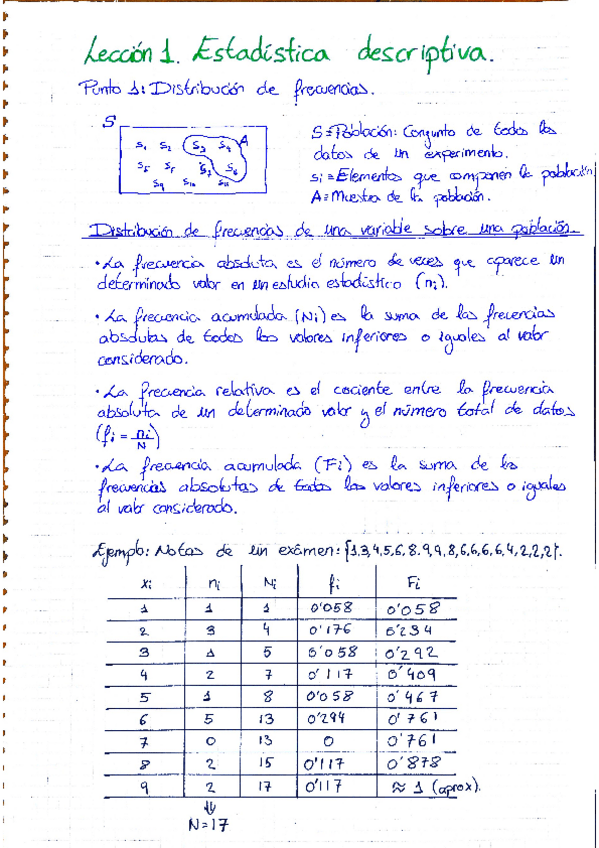 Lección 1. Estadística descriptiva.
Punto 1: Distribución de frecuencias.
S
S1 S2 S3 S4 A
S5 S5 S6
S9 S10 S11
S = Población: Conjunto de todos los
datos de un experimento.
si = Elementos que componen la población
A = Muestra de la población.
Distribución de frecuencias de una variable sobre una población.
• La frecuencia absoluta es el número de veces que aparece un
determinado valor en un estudio estadístico (ni).
• La frecuencia acumulada (Ni) es la suma de las frecuencias
absolutas de todos los valores inferiores o iguales al valor
considerado.
• La frecuencia relativa es el cociente entre la frecuencia
absoluta de un determinado valor y el número total de datos
(fi = ni/N)
• La frecuencia acumulada (Fi) es la suma de las
frecuencias absolutas de todos los valores inferiores o iguales
al valor considerado.
Ejemplo: Notas de un exámen: {1,3,4,5,6,8,9,9,8,6,6,6,6,4,2,2,2}.
xi ni Ni fi Fi
1 1 1 0'058 0'058
2 3 4 0'176 0'234
3 1 5 0'058 0'292
4 2 7 0'117 0'409
5 1 8 0'058 0'467
6 5 13 0'294 0'761
7 0 13 0 0'761
8 2 15 0'117 0'878
9 2 17 0'117 ≈ 1 (aprox).
⇓
N=17